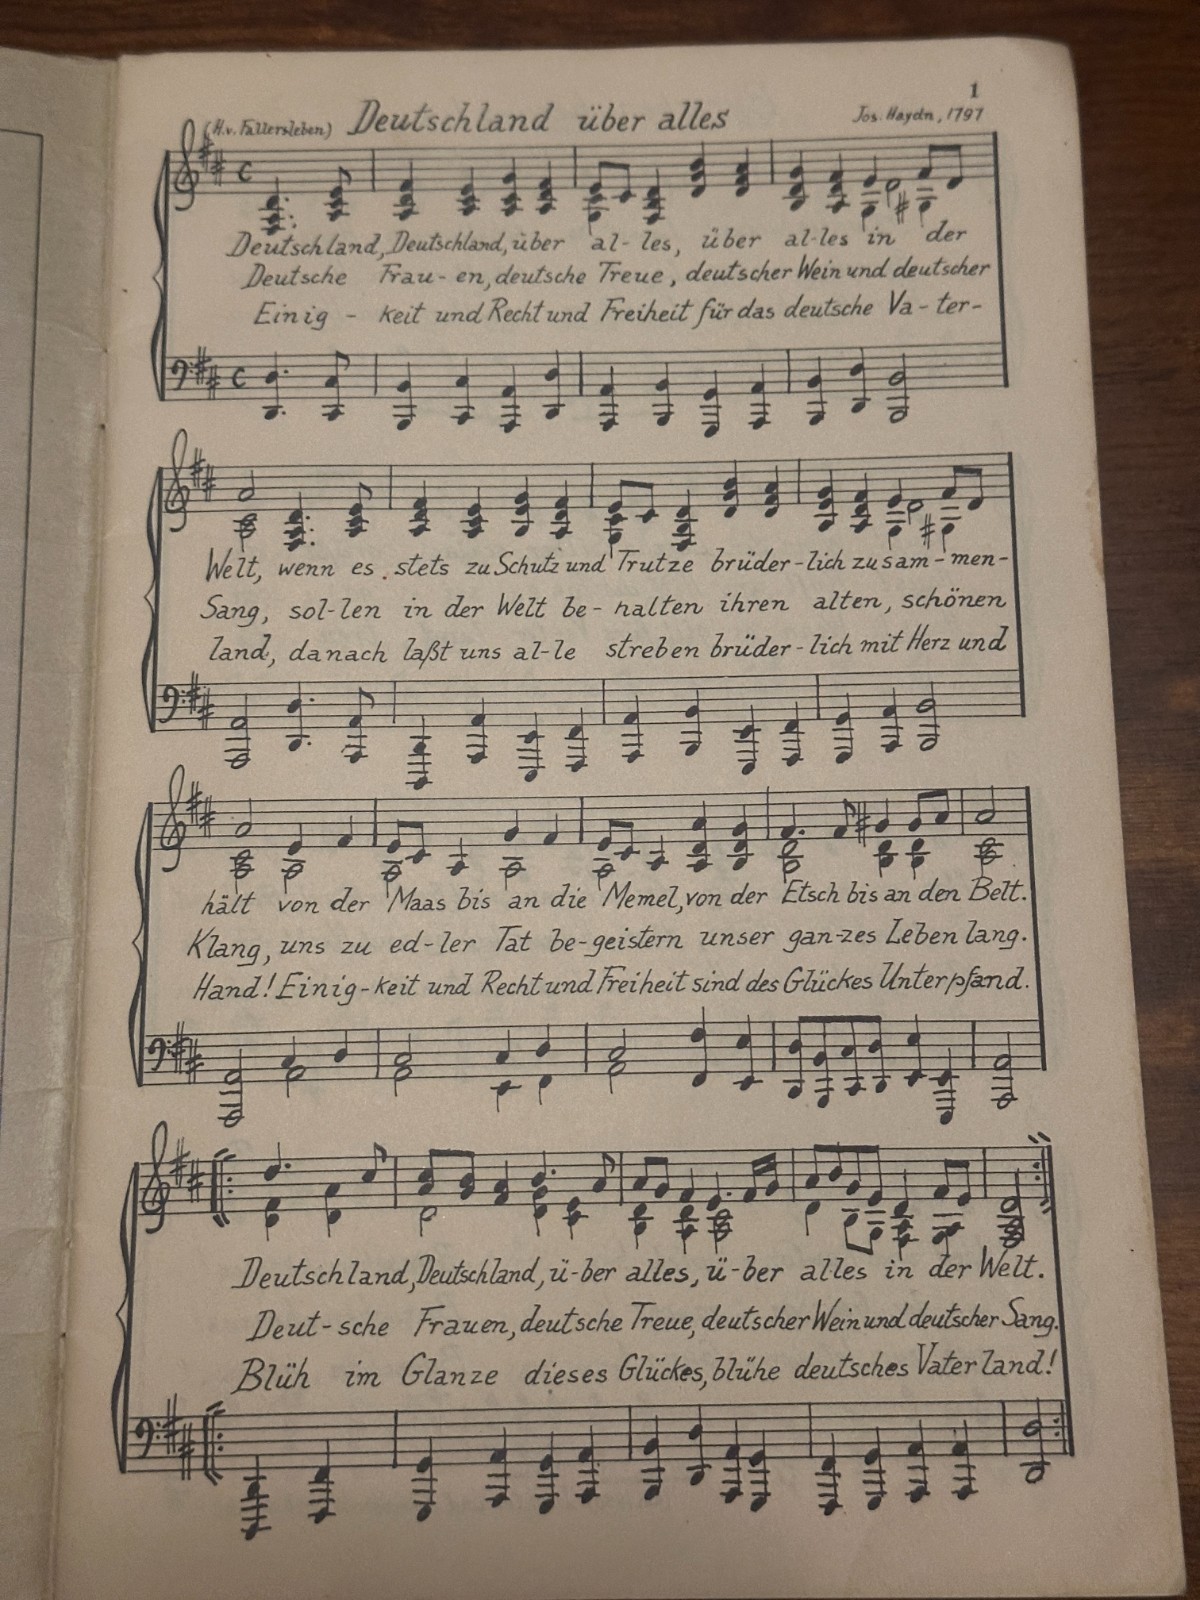 1
(H.v. Fallersleben) Deutschland über alles Jos. Haydn, 1797
Deutschland, Deutschland, über al- les, über al-les in der
Deutsche Frau- en, deutsche Treue, deutscher Wein und deutscher
Einig - keit und Recht und Freiheit für das deutsche Va- ter-
Welt, wenn es stets zu Schutz und Trutze brüder-lich zusam-men-
Sang, sol-len in der Welt be- halten ihren alten, schönen
land, danach laßt uns al-le streben brüder-lich mit Herz und
hält von der Maas bis an die Memel, von der Etsch bis an den Belt.
Klang, uns zu ed-ler Tat be-geistern unser gan-zes Leben lang.
Hand! Einig-keit und Recht und Freiheit sind des Glückes Unterpfand.
Deutschland, Deutschland, ü-ber alles, ü-ber alles in der Welt.
Deut-sche Frauen, deutsche Treue, deutscher Wein und deutscher Sang.
Blüh im Glanze dieses Glückes, blühe deutsches Vaterland!